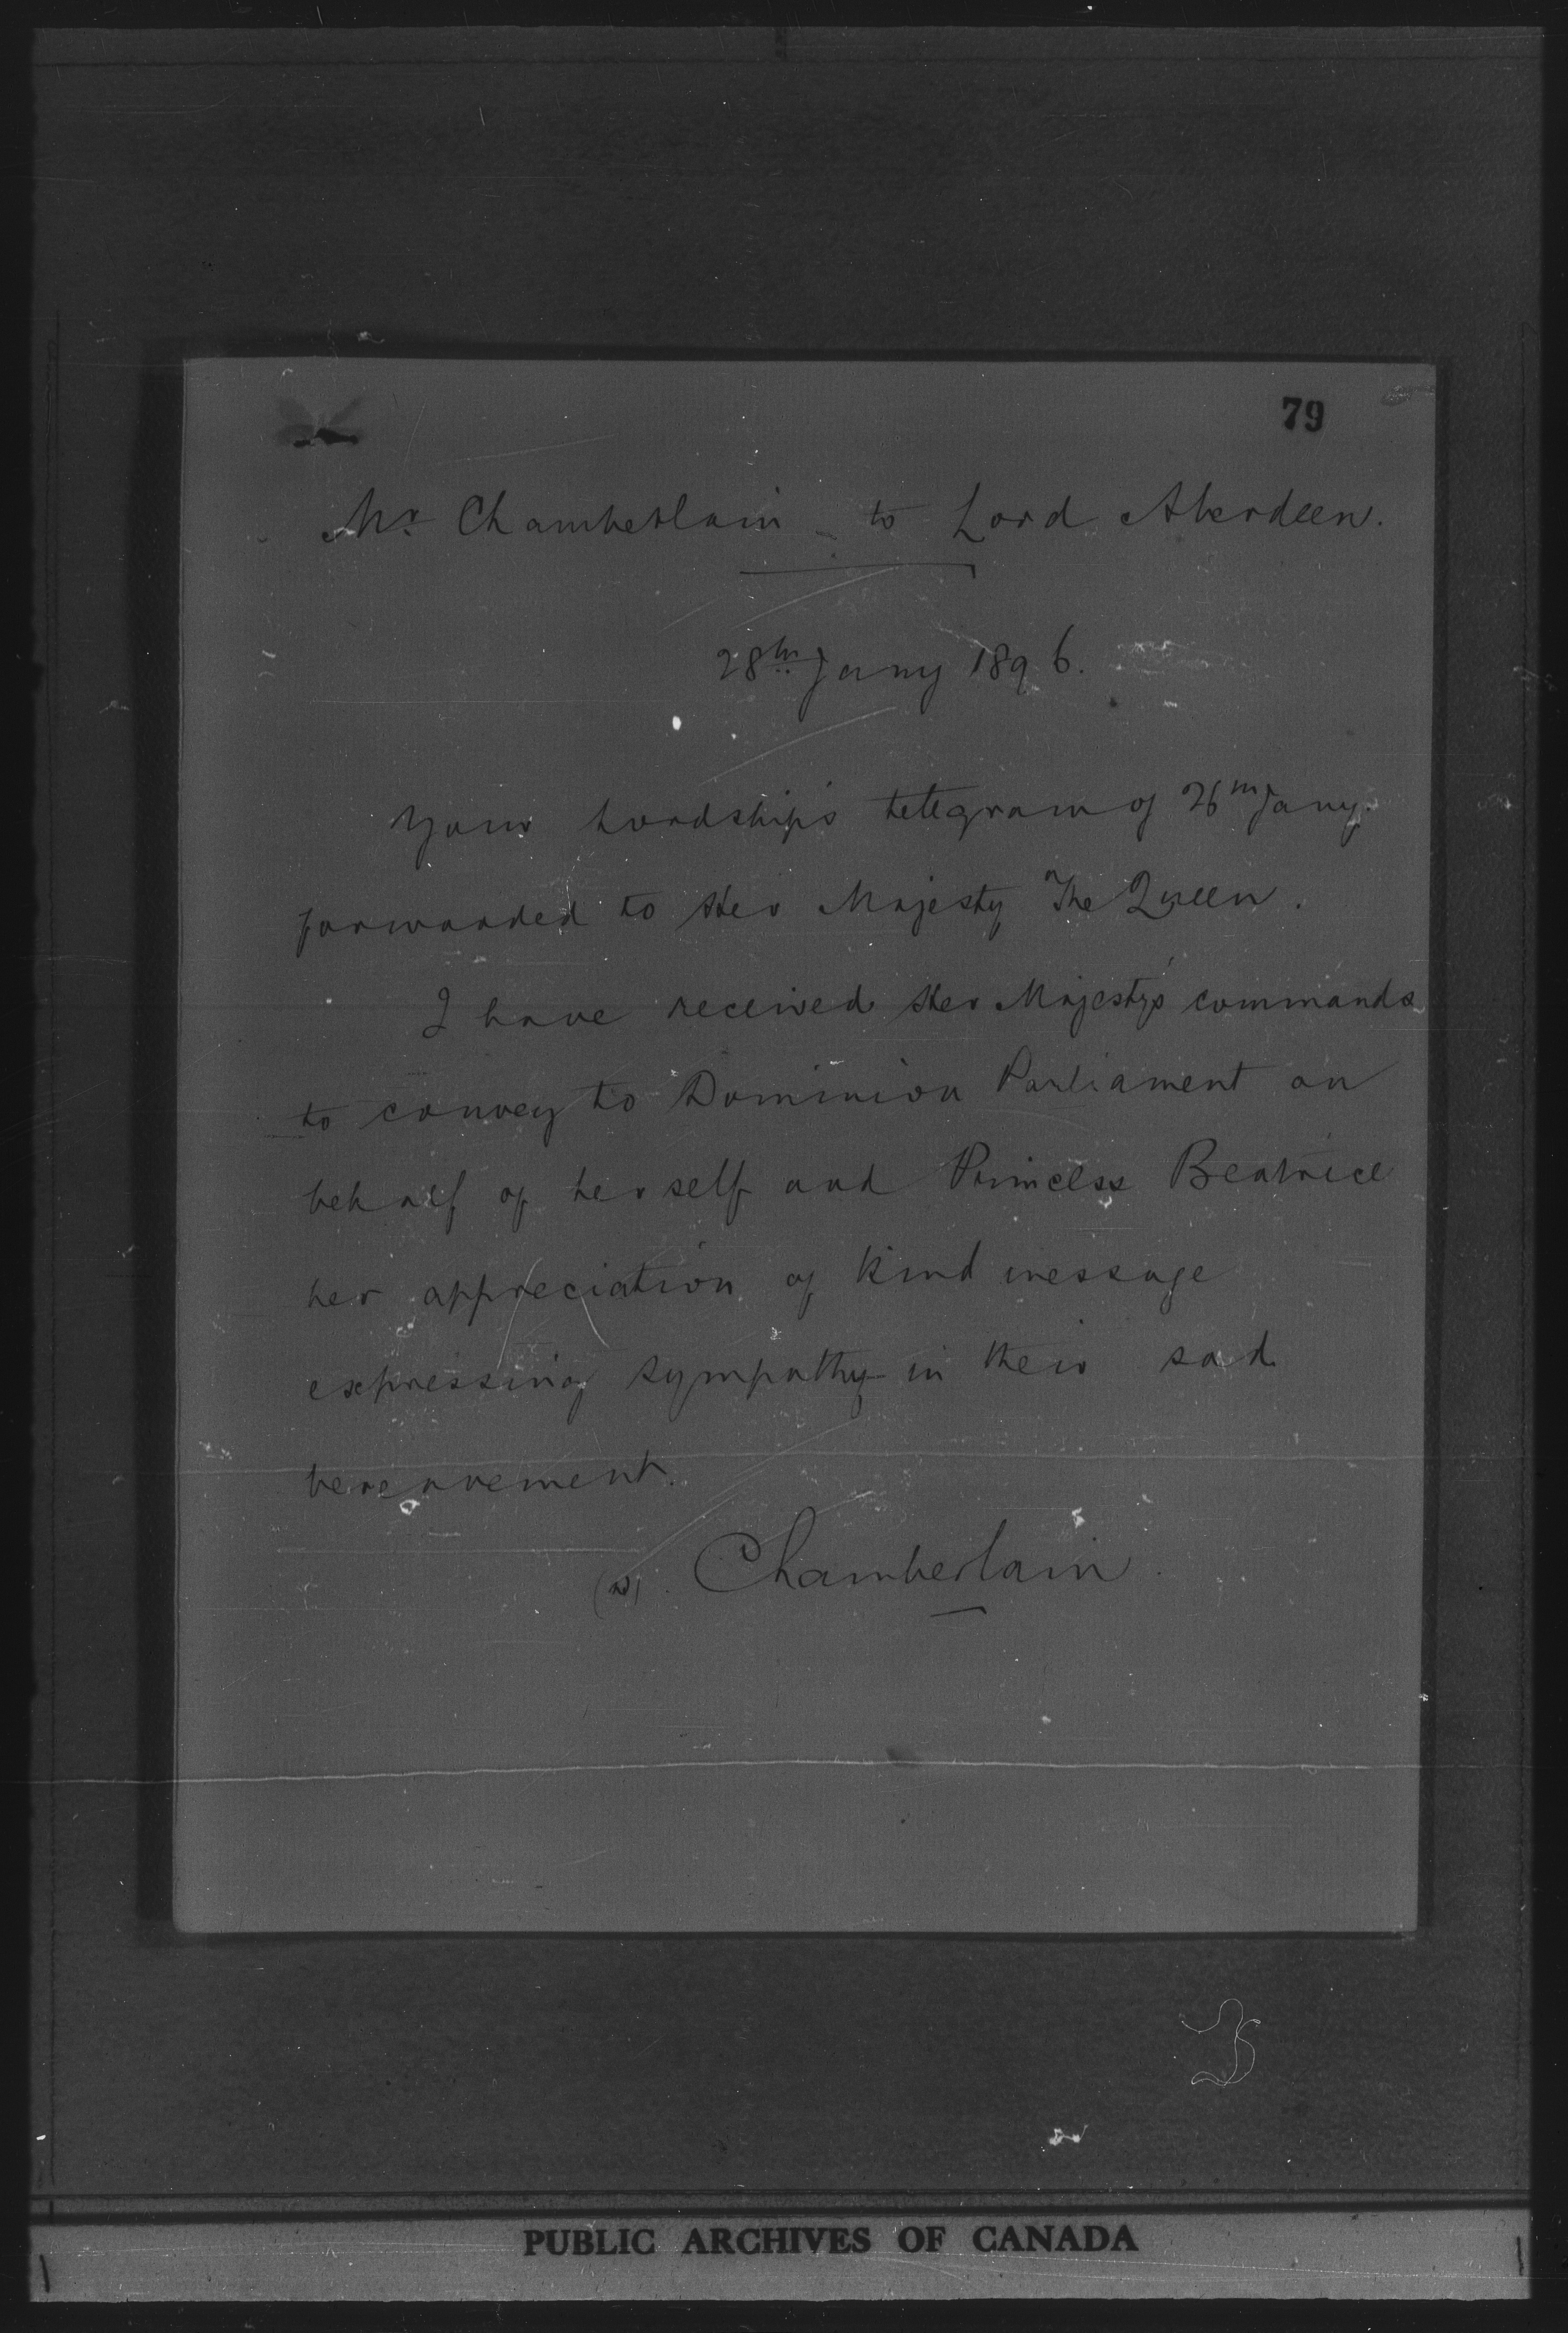 79
Mr. Chamberlain to Lord Aberdeen.
28th Jany 1896.
Your Lordship's telegram of 26th Jany.
forwarded to Her Majesty The Queen.
I have received Her Majesty's commands
to convey to Dominion Parliament on
behalf of herself and Princess Beatrice
her appreciation of kind message
expressing sympathy in their sad
bereavement.
Chamberlain
PUBLIC ARCHIVES OF CANADA